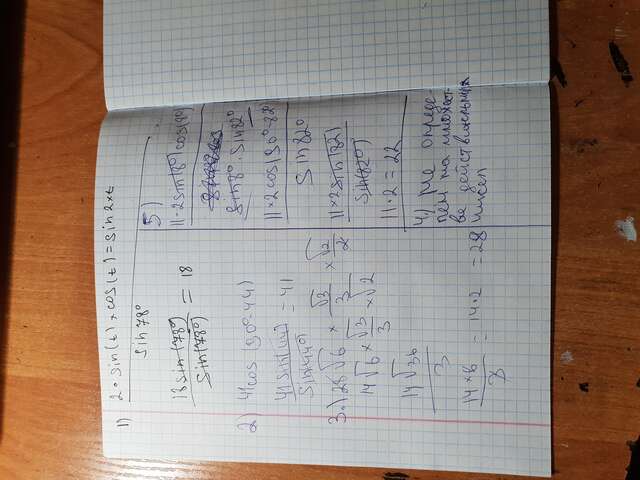 1) 2 · sin(t) × cos(t) = sin 2 × t
sin 78°
18 sin (78°)
sin (78°)
= 18
2) 41 cos (90° - 44)
41 sin (44)
sin 44°
= 41
3.) 28 √6 × √3/3 × √2/2
14 √6 × √3/3 × √2
14 √36
3
14 × 6
3
= 14 · 2 = 28
5)
11 · 2 sin(8°) cos(8°)
sin 8° · sin 82°
11 × 2 cos(90° - 82°)
sin 82°
11 × 2 sin(82)
sin(82°)
11 · 2 = 22
4.) Не опреде-
лен на множест-
ве действительных
чисел